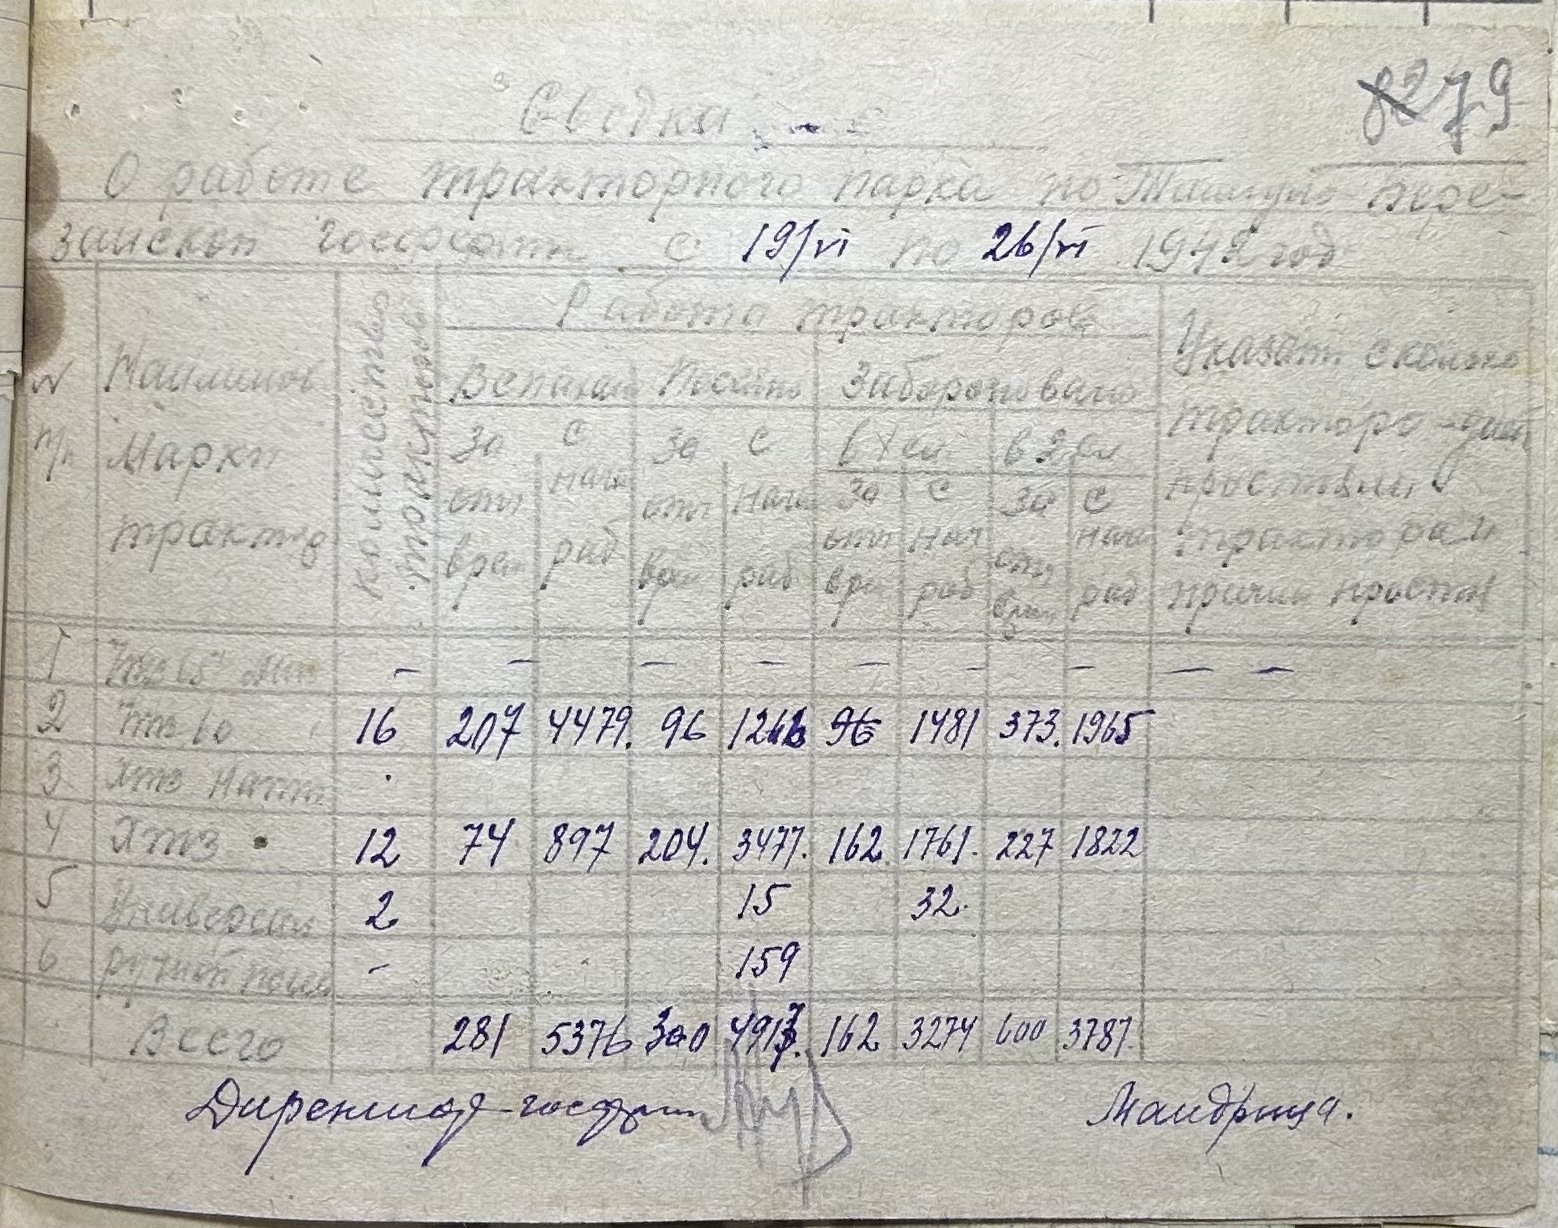 82 79
Сводка
О работе тракторного парка по
с 19/VI по 26/VI 1942 год
N п/п
Марки трактор
количество тракторов
Работа тракторов
Указать сколько тракторо-дней простаивали трактора и причин простоя
Вспахан Посеяно Забороновано
в 1 сл в 2 сл
За отч врем С нач раб За отч врем С нач раб За отч вре С нач раб За отч врем С нач раб
1 – – – – – – – – –
2 16 207 4479. 96 96 1481 373. 1965
3 ХТЗ Натт
4 ХТЗ 12 74 897 204. 3477. 162 1761. 227 1822
5 Универсал 2 15 32.
6 ручной посев – 159
Всего 281 5376 300 162 3274 600 3787
Директор